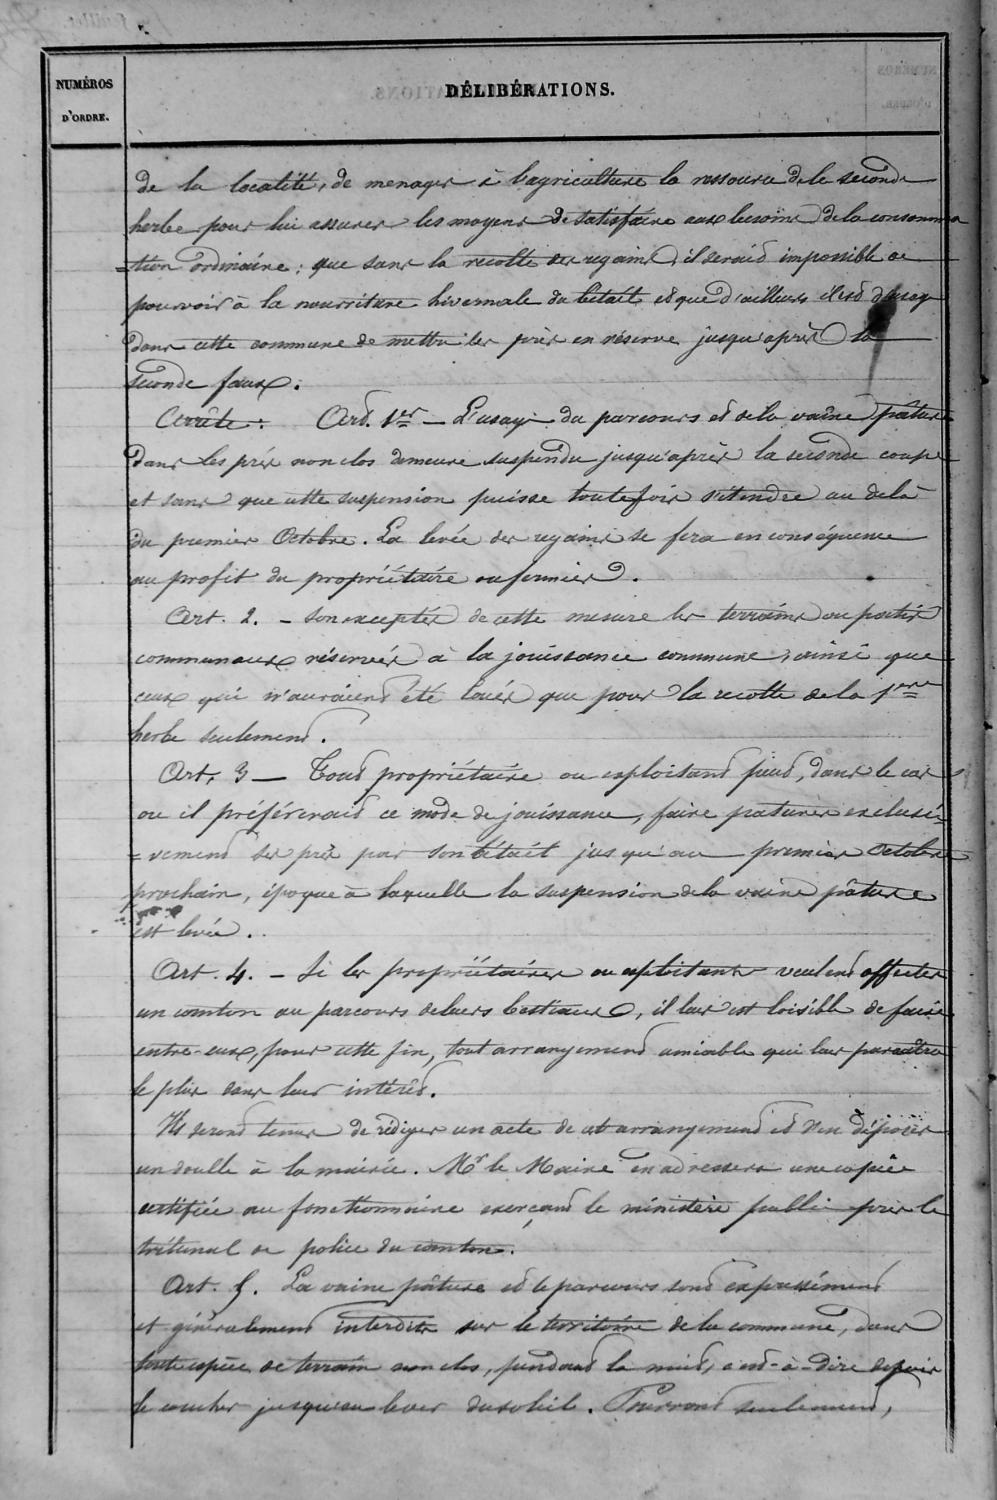 NUMÉROS
D'ORDRE.
DÉLIBÉRATIONS.
de la localité, de menager à l'agriculture la ressource de la seconde
herbe pour lui assurer les moyens de satisfaire aux besoins de la consomma
=tion ordinaire; que sans la recolte des regains, il serait impossible de
pourvoir à la nourriture hivernale du bétail et que d'ailleurs il est d'usage
dans cette commune de mettre les près en réserve jusqu'après la
seconde faux.
Arrête: Art. 1er — L'usage du parcours et de la vaine pâture
dans les près non clos demeure suspendu jusqu'après la seconde coupe
et sans que cette suspension puisse toutefois s'étendre au delà
du premier Octobre. La levée des regains se fera en conséquence
au profit du propriétaire ou fermier.
Art. 2. - Son exceptés de cette mesure les terrains ou partie
communaux réservés à la jouissance commune, ainsi que
ceux qui n'auraient été loués que pour la recolte de la 1ere
herbe seulement.
Art. 3 — Tout propriétaire ou exploitant peut, dans le cas
ou il préférerait ce mode de jouissance, faire paturer exclusi
=vement ses près par son bétail jusqu'au premier Octobre
prochain, époque à laquelle la suspension de la vaine pâture
est levée.
Art. 4. - Si les propriétaires ou exploitants veulent affecter
un canton au parcours de leurs bestiaux, il leur est loisible de faire
entre-eux, pour cette fin, tout arrangement amiable qui leur paraîtra
le plus dans leur intérêt.
Ils seront tenus de rédiger un acte de cet arrangement et d'en déposer
un double à la mairie. Mr le Maire en adressera une copie
certifiée au fonctionnaire exerçant le ministère public près le
tribunal de police du canton.
Art. 5. La vaine pâture et le parcours sont expressément
et généralement interdits sur le territoire de la commune, dans
toute espèce de terrain non clos, pendant la nuit, c'est-à-dire depuis
le coucher jusqu'au lever du soleil. Pourront seulement,